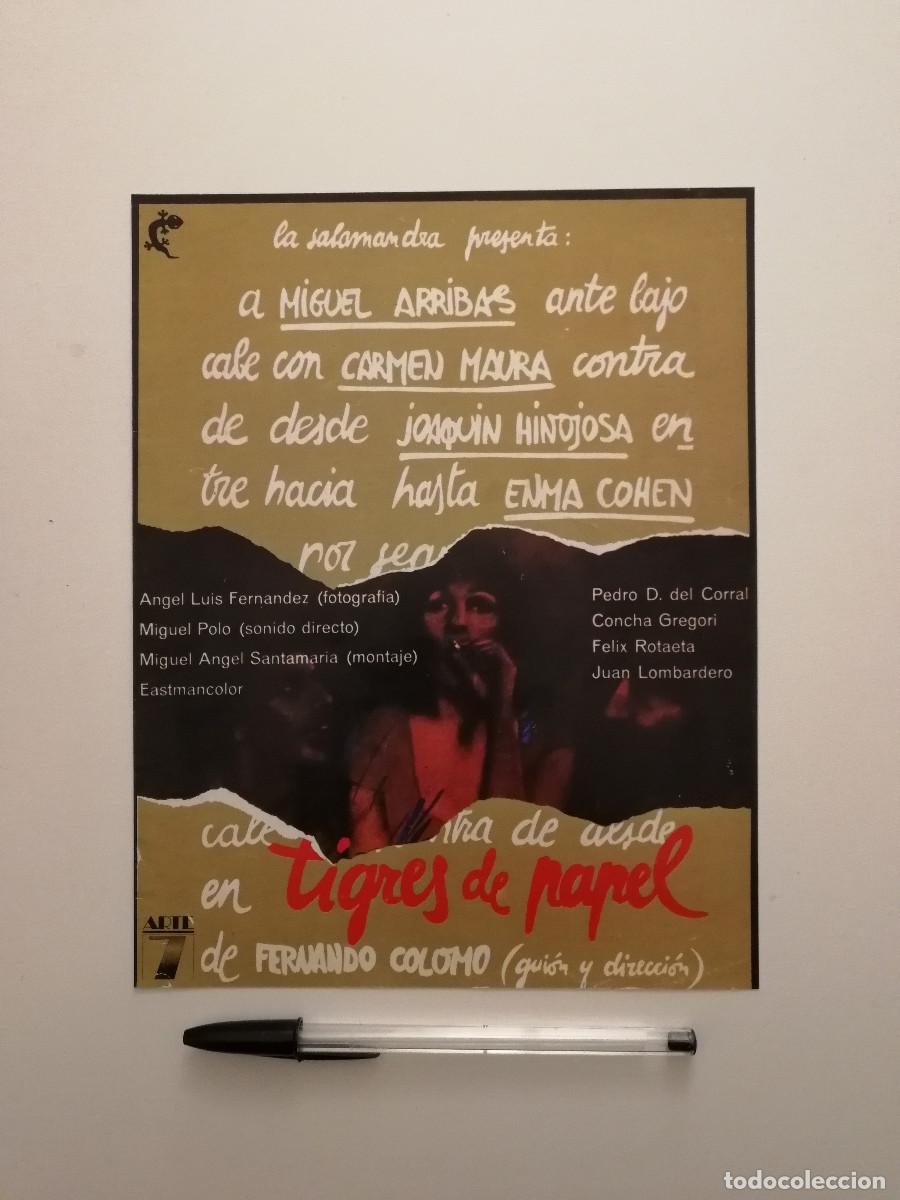 la salamandra presenta:
a MIGUEL ARRIBAS ante bajo
cabe con CARMEN MAURA contra
de desde JOAQUIN HINOJOSA en
tre hacia hasta ENMA COHEN
por
Angel Luis Fernandez (fotografia)
Miguel Polo (sonido directo)
Miguel Angel Santamaria (montaje)
Eastmancolor
Pedro D. del Corral
Concha Gregori
Felix Rotaeta
Juan Lombardero
de desde
en tigres de papel
de FERNANDO COLOMO (guión y dirección)
ARTE
7
todocoleccion
todocoleccion.net